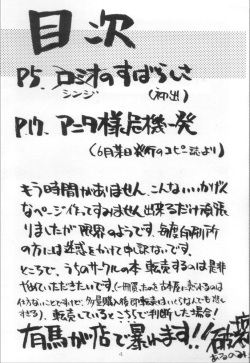 目次
P5. ロミオのすばらしさ
シンジ
(初出)
P17. アニタ様危機一発
(6月某日発行のコピー誌より)
もう時間がありません。こんないいかげん
なページ作ってすみません。出来るだけ頑張
りましたが限界のようです。毎度印刷所
の方には迷惑をかけて申訳ないです。
ところで、うちのサークルの本、転売するのは是非
やめていただきたいです。(一冊買ったのを古本屋に売られるのは
仕方ないことですけど、多量購入後即転売はいくらなんでも悲し
すぎる)、転売しているところで判断した場合!
有馬が店で暴れます!!
4